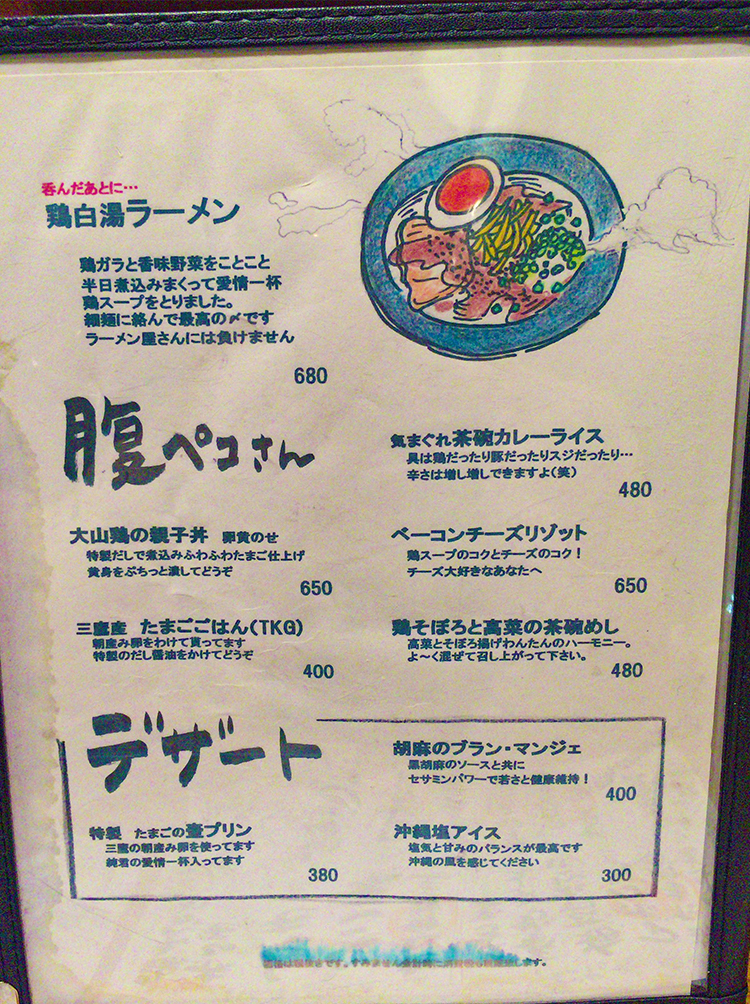 呑んだあとに…
鶏白湯ラーメン
鶏ガラと香味野菜をことこと
半日煮込みまくって愛情一杯
鶏スープをとりました。
細麺に絡んで最高の〆です
ラーメン屋さんには負けません
680
腹ペコさん
大山鶏の親子丼 卵黄のせ
特製だしで煮込みふわふわたまご仕上げ
黄身をぷちっと潰してどうぞ
650
三鷹産 たまごごはん(TKG)
朝産み卵をわけて貰ってます
特製のだし醤油をかけてどうぞ
400
気まぐれ茶碗カレーライス
具は鶏だったり豚だったりスジだったり…
辛さは増し増しできますよ(笑)
480
ベーコンチーズリゾット
鶏スープのコクとチーズのコク！
チーズ大好きなあなたへ
650
鶏そぼろと高菜の茶碗めし
高菜とそぼろ揚げわんたんのハーモニー。
よ〜く混ぜて召し上がって下さい。
480
デザート
特製 たまごの壷プリン
三鷹の朝産み卵を使ってます
純君の愛情一杯入ってます
380
胡麻のブラン・マンジェ
黒胡麻のソースと共に
セサミンパワーで若さと健康維持！
400
沖縄塩アイス
塩気と甘みのバランスが最高です
沖縄の風を感じてください
300